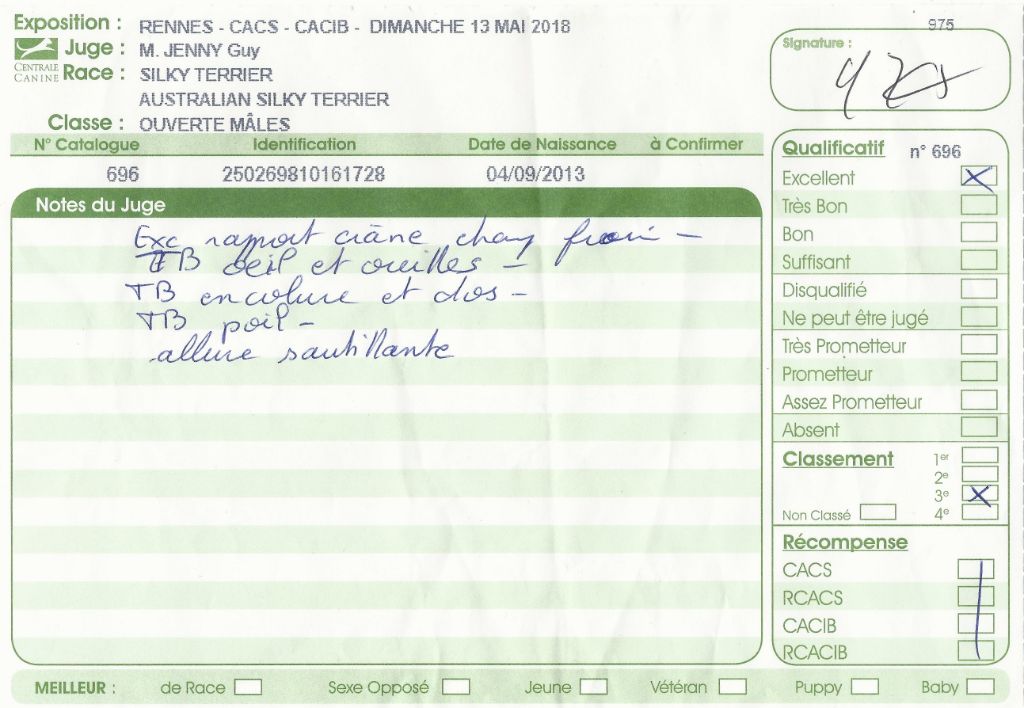 Exposition : RENNES - CACS - CACIB - DIMANCHE 13 MAI 2018
975
CENTRALE CANINE
Juge : M. JENNY Guy
Race : SILKY TERRIER
AUSTRALIAN SILKY TERRIER
Classe : OUVERTE MÂLES
Signature :
N° Catalogue Identification Date de Naissance à Confirmer
696 250269810161728 04/09/2013
Notes du Juge
Exc rapport crâne
TB oeil et oreilles -
TB encolure et dos -
TB poil -
allure sautillante
Qualificatif n° 696
Excellent X
Très Bon
Bon
Suffisant
Disqualifié
Ne peut être jugé
Très Prometteur
Prometteur
Assez Prometteur
Absent
Classement 1er
2e
3e X
Non Classé 4e
Récompense
CACS
RCACS
CACIB
RCACIB
MEILLEUR : de Race Sexe Opposé Jeune Vétéran Puppy Baby